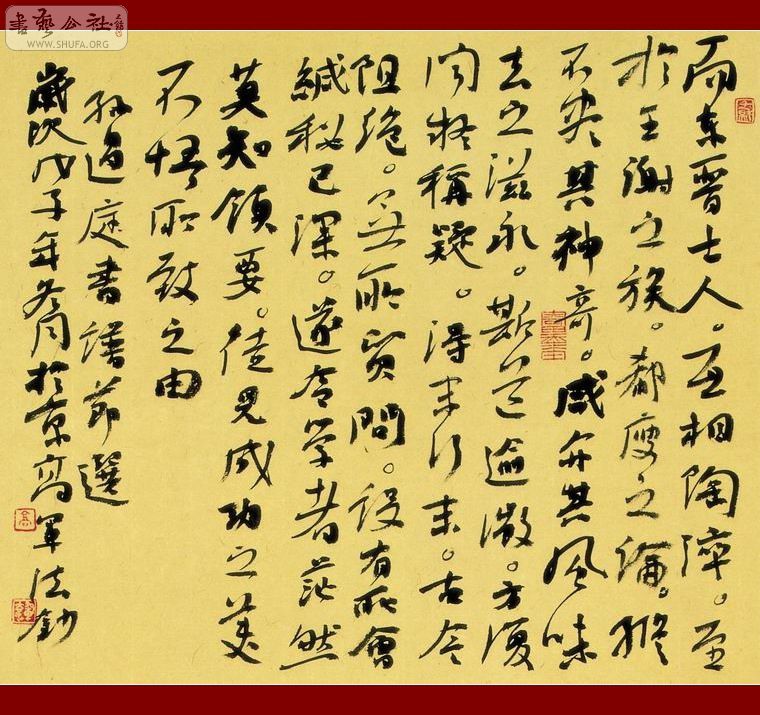 書藝公社
WWW.SHUFA.ORG
而东晋士人。互相陶淬。至
於王謝之族。郗庾之論。縱
不尽其神奇。咸亦其风味
去之滋永。斯道逾微。方復
闻疑稱疑。得末行末。古今
阻绝。無所质問。設有所會
缄秘已深。遂令学者茫然
莫知領要。徒見成功之美
不悟所致之由
孙過庭書譜節選
歲次戊子年冬月於京高軍法鈔